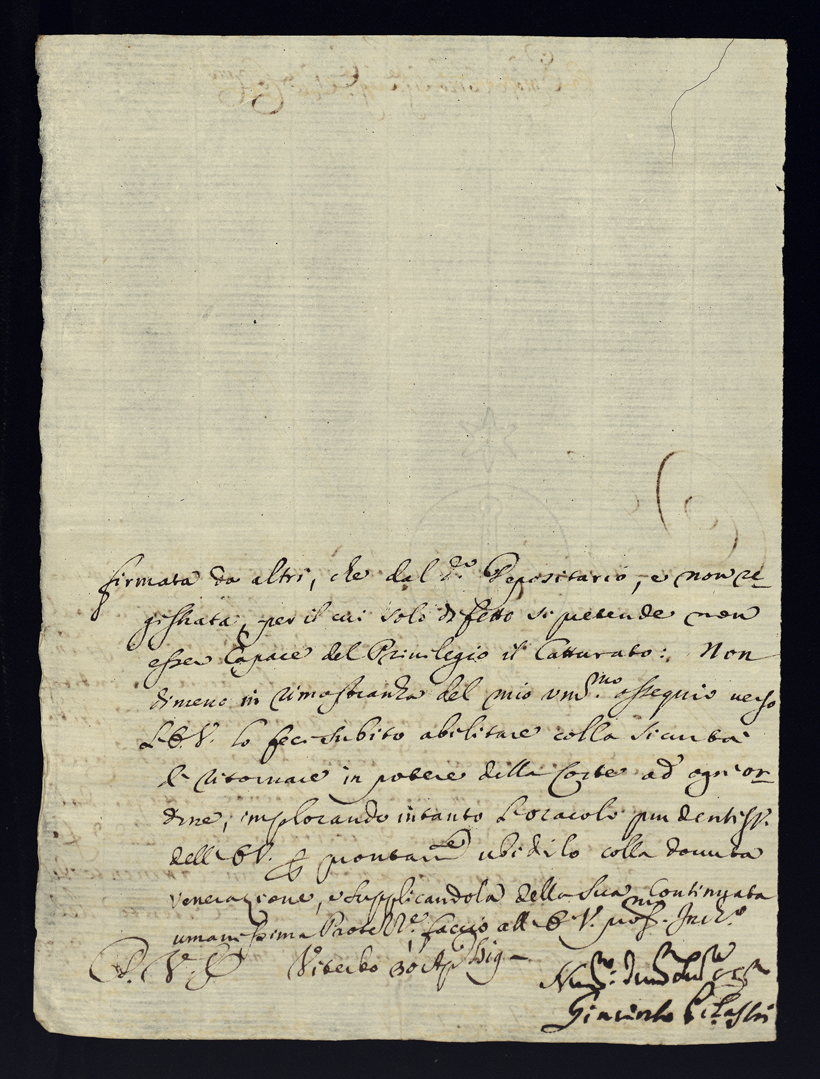 firmata da altri, che dal d.º Depositario, e non re_
gistrata, per il cui solo difetto si pretende non
esser Capace del Privilegio il Catturato: Non
dimeno in rimostranza del mio um.mo ossequio verso
L'E.V. lo feci subito abilitare colla sicurtà
di ritornare in potere della Corte ad ogni or_
dine, implorando intanto L'oracolo prudentiss.º
dell'E.V. p prontam.e ubidilo colla dovuta
venerazione, e supplicandola della sua continuata
umanissima Protez.ne faccio all'E.V. prof.mo Inch.º
D.V.E. Viterbo 30 Ap
Giacinto